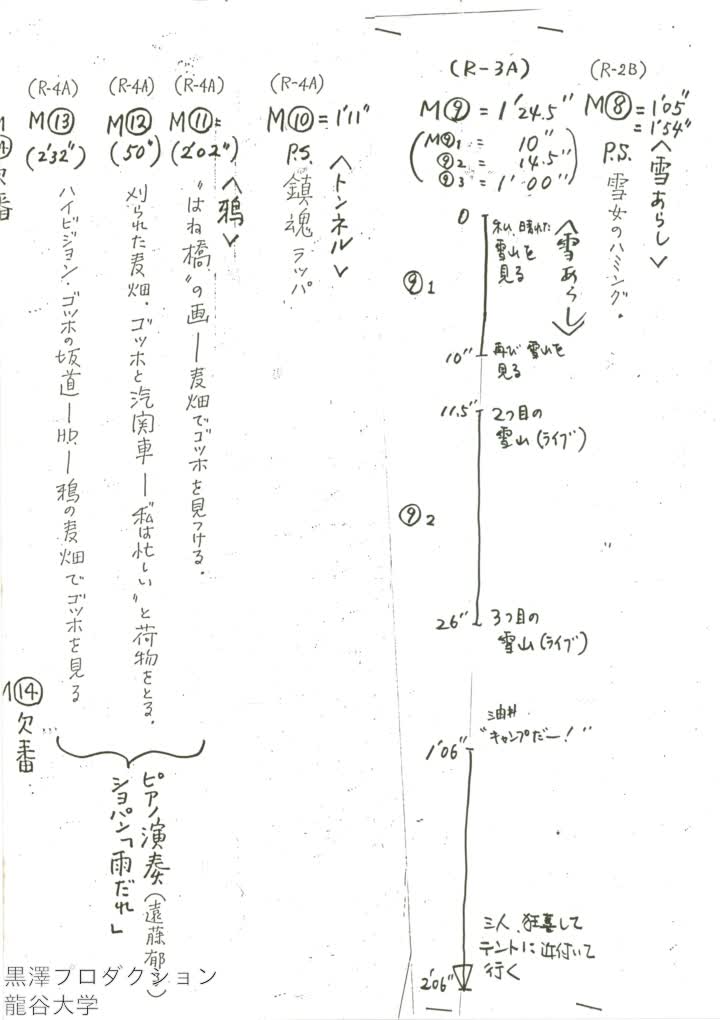 (R-2B)
M⑧ = 1'05"
= 1'54"
<雪あらし>
P.S. 雪女のハミング.
(R-3A)
M⑨ = 1'24.5"
(M⑨1 = 10"
⑨2 = 14.5"
⑨3 = 1'00")
<雪あらし>
0
私、晴れた
雪山を
見る
⑨1
10"
再び雪山を
見る
11.5"
2つ目の
雪山(ライブ)
⑨2
26"
3つ目の
雪山(ライブ)
"キャンプだー!"
1'06"
三人、狂喜して
テントに近付いて
行く
2'06"
(R-4A)
M⑩ = 1'11"
<トンネル>
P.S. 鎮魂ラッパ
(R-4A)
M⑪ =
(2'02")
<鴉>
"はね橋"の画―麦畑でゴッホを見つける.
(R-4A)
M⑫
(50")
刈られた麦畑.ゴッホと汽関車―"私は忙しい"と荷物をとる.
(R-4A)
M⑬
(2'32")
ハイビジョン.ゴッホの坂道―H.D.―鴉の麦畑でゴッホを見る
ピアノ演奏(遠藤郁子)
ショパン「雨だれ」
⑭
欠番
欠番
黒澤プロダクション
龍谷大学